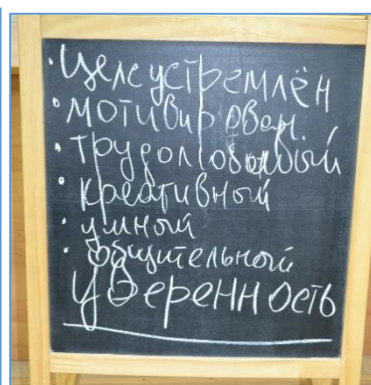 · Целеустремлён
· мотивирован
· трудолюбивый
· креативный
· умный
· общительный
уверенность